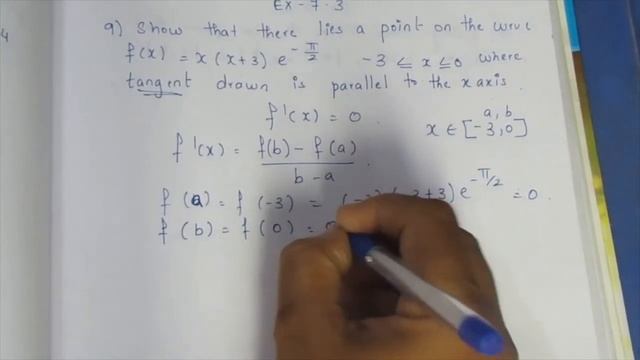 4
Ex - 7.3
9) Show that there lies a point on the curve
f(x) = x(x+3) e^{-π/2} -3 ≤ x ≤ 0 where
tangent drawn is parallel to the x axis.
f'(x) = 0. a, b
f'(x) = \frac{f(b) - f(a)}{b - a}. x ∈ [-3, 0]
f(a) = f(-3) = +3) e^{-π/2} = 0.
f(b) = f(0) =